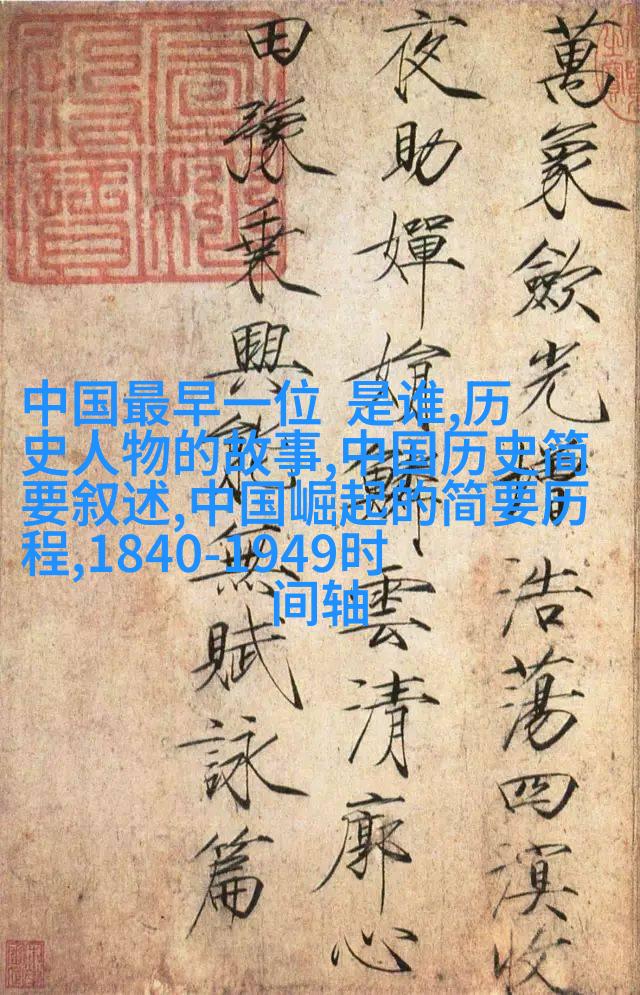 萬象歛光增浩蕩四溟收
夜助嬋娟鱗雲清廓心
田豫乗興能無賦詠篇
中国最早一位 是谁,历
史人物的故事,中国历史简
要叙述,中国崛起的简要历
程,1840-1949时
间轴